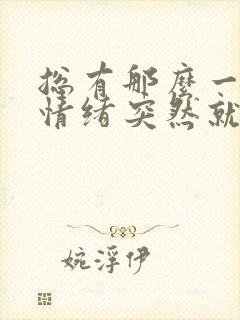 总有那麽一
情绪突然就
婉浮伊